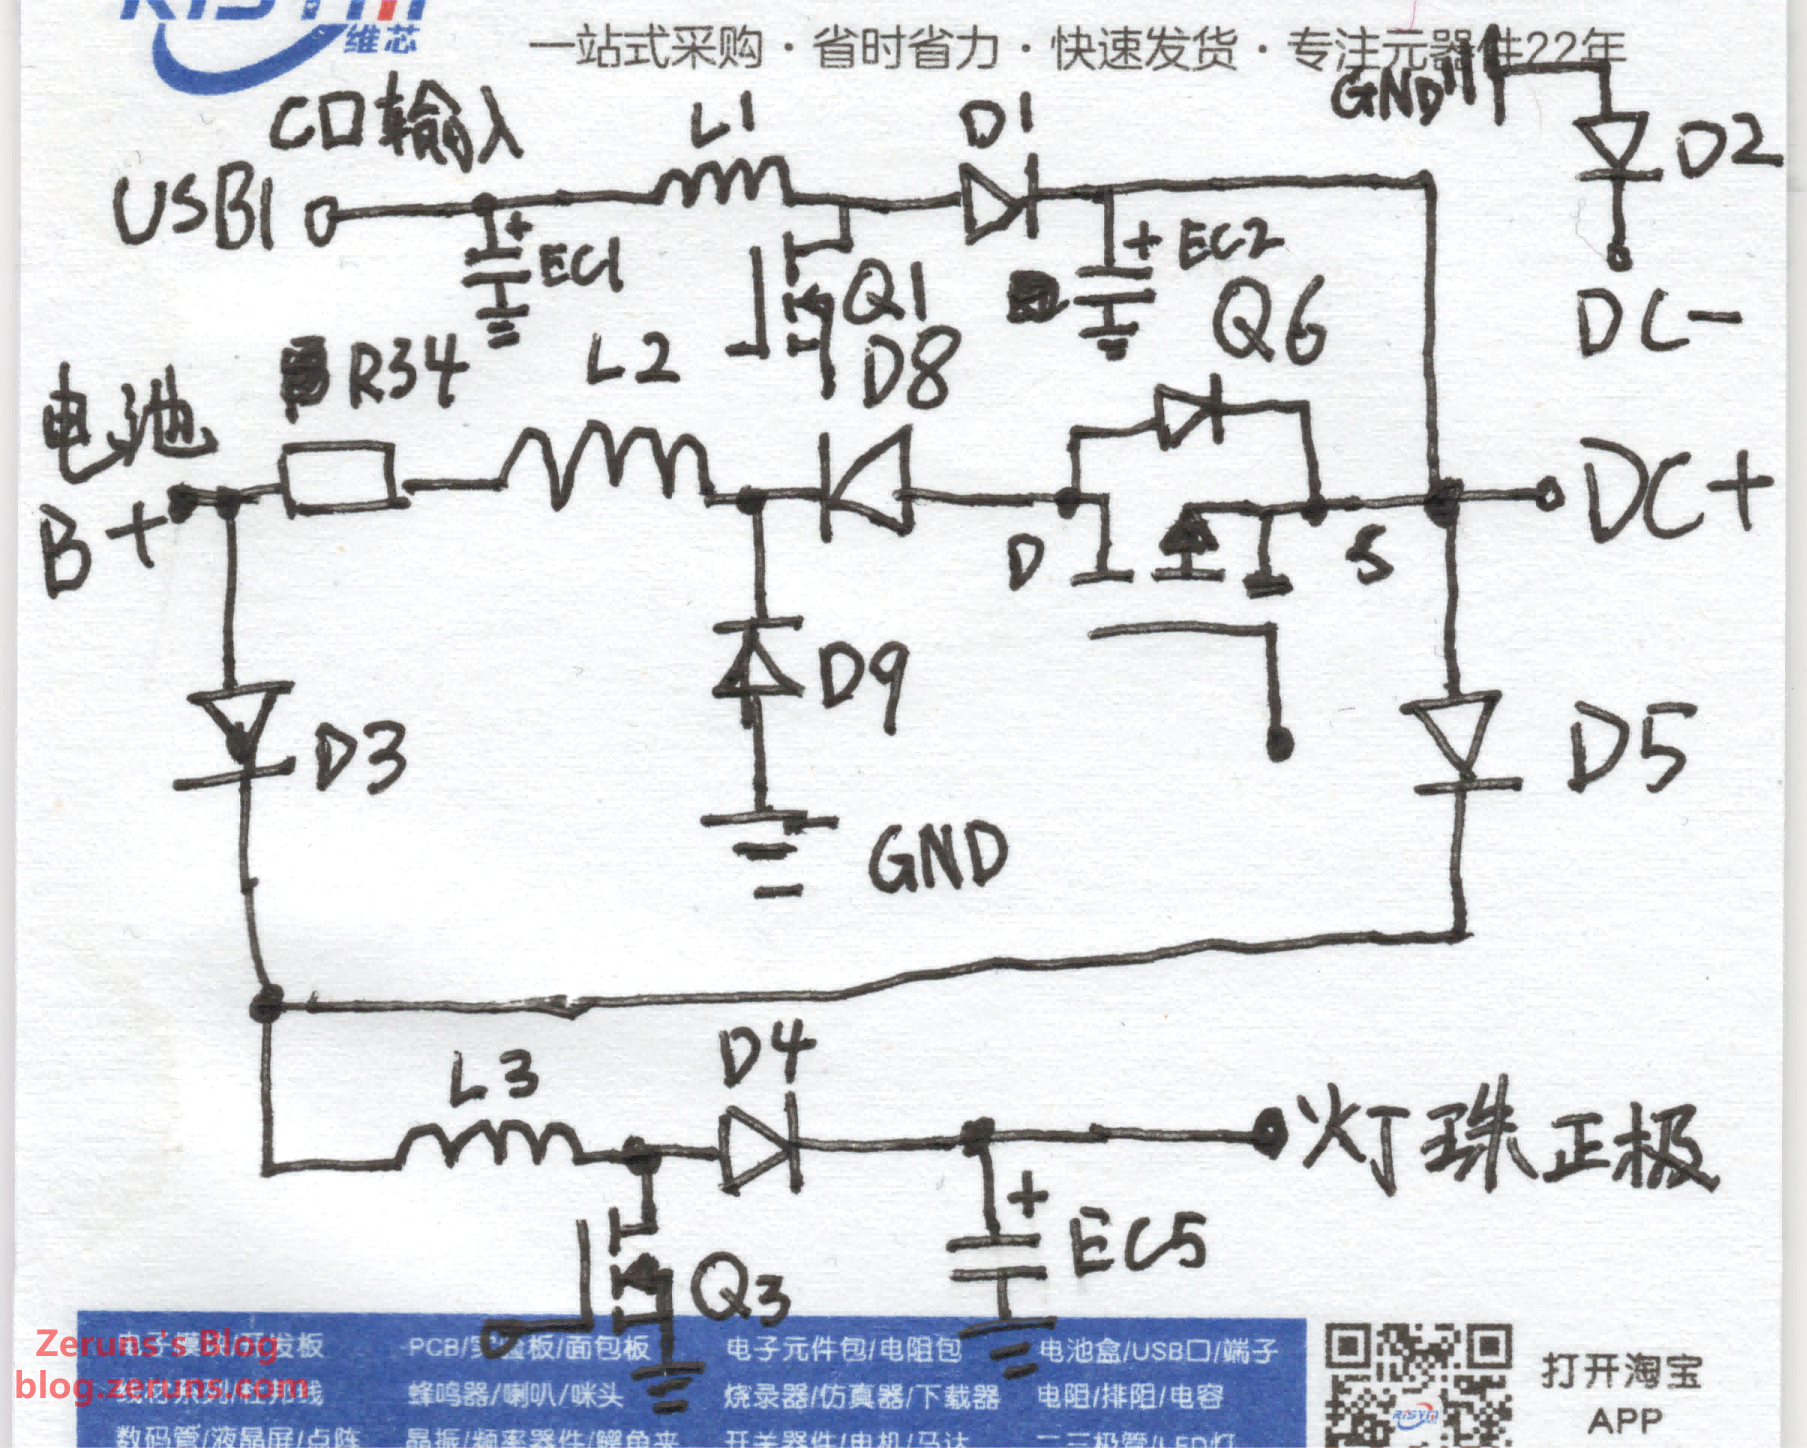 RISYM
维芯
一站式采购·省时省力·快速发货·专注元器件22年
GND
C口输入
L1
D1
D2
USB1
+
EC1
Q1
+ EC2
Q6
DC-
电池
R34
L2
D8
B+
D
S
DC+
D9
D3
D5
GND
L3
D4
灯珠正极
+
EC5
Q3
Zeruns's Blog
blog.zeruns.com
PCB/实验板/面包板
电子元件包/电阻包
电池盒/USB口/端子
蜂鸣器/喇叭/咪头
烧录器/仿真器/下载器
电阻/排阻/电容
数码管/液晶屏/点阵
晶振/频率器件/鳄鱼夹
开关器件/电机/马达
二三极管/LED灯
RISYM
打开淘宝
APP